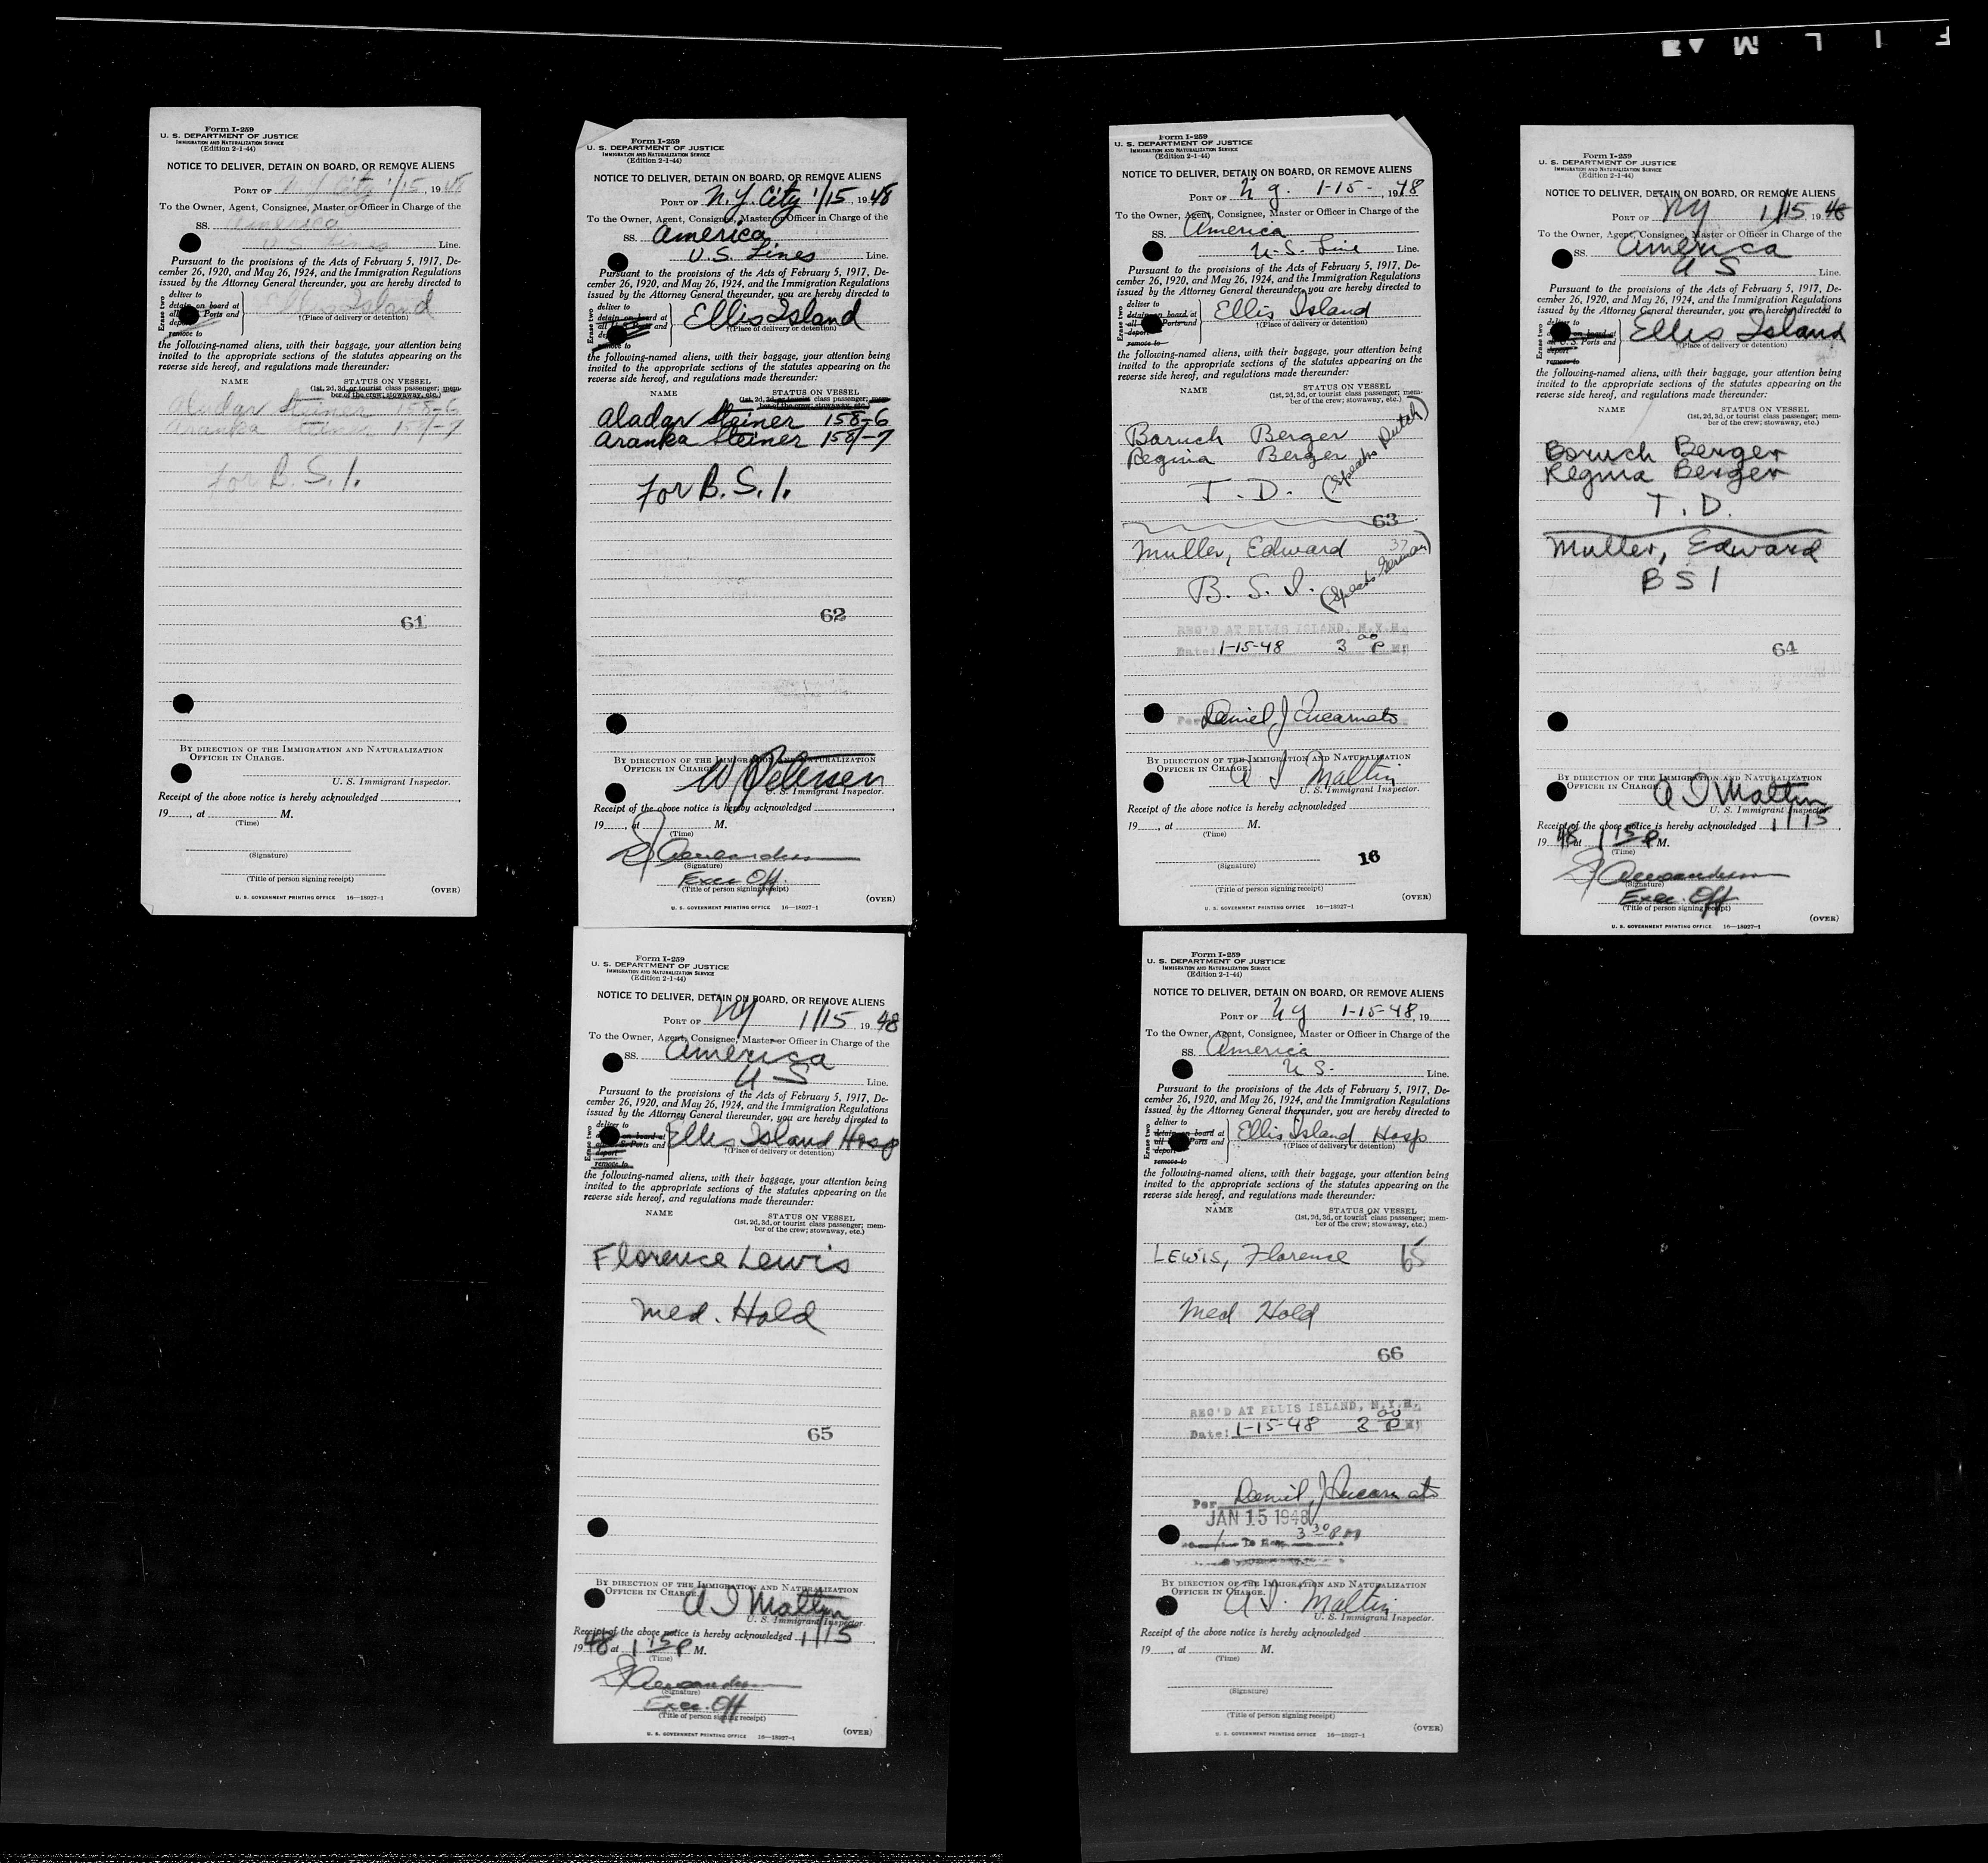 F I L M
Form I-259
U. S. DEPARTMENT OF JUSTICE
IMMIGRATION AND NATURALIZATION SERVICE
(Edition 2-1-44)
NOTICE TO DELIVER, DETAIN ON BOARD, OR REMOVE ALIENS
PORT OF N. Y. City 1/15, 1948
To the Owner, Agent, Consignee, Master or Officer in Charge of the
SS. America
U.S. Lines Line.
Pursuant to the provisions of the Acts of February 5, 1917, De-
cember 26, 1920, and May 26, 1924, and the Immigration Regulations
issued by the Attorney General thereunder, you are hereby directed to
Erase two
deliver to
detain on board at
all Ports and
remove to
Ellis Island
†(Place of delivery or detention)
the following-named aliens, with their baggage, your attention being
invited to the appropriate sections of the statutes appearing on the
reverse side hereof, and regulations made thereunder:
NAME STATUS ON VESSEL
(1st, 2d, 3d, or tourist class passenger; mem-
ber of the crew; stowaway, etc.)
Aladar Steiner 158-6
Aranka Steiner 158-7
for B. S. I.
61
BY DIRECTION OF THE IMMIGRATION AND NATURALIZATION
OFFICER IN CHARGE.
U. S. Immigrant Inspector.
Receipt of the above notice is hereby acknowledged
19, at M.
(Time)
(Signature)
(Title of person signing receipt)
(OVER)
U. S. GOVERNMENT PRINTING OFFICE 16—18927-1
Form I-259
U. S. DEPARTMENT OF JUSTICE
IMMIGRATION AND NATURALIZATION SERVICE
(Edition 2-1-44)
NOTICE TO DELIVER, DETAIN ON BOARD, OR REMOVE ALIENS
PORT OF N. Y. City 1/15, 1948
To the Owner, Agent, Consignee, Master or Officer in Charge of the
SS. America
U.S. Lines Line.
Pursuant to the provisions of the Acts of February 5, 1917, De-
cember 26, 1920, and May 26, 1924, and the Immigration Regulations
issued by the Attorney General thereunder, you are hereby directed to
Erase two
deliver to
detain on board at
all and
remove to
Ellis Island
†(Place of delivery or detention)
the following-named aliens, with their baggage, your attention being
invited to the appropriate sections of the statutes appearing on the
reverse side hereof, and regulations made thereunder:
NAME STATUS ON VESSEL
(1st, 2d, 3d, or tourist class passenger; mem-
ber of the crew; stowaway, etc.)
Aladar Steiner 158-6
Aranka Steiner 158-7
for B. S. I.
62
BY DIRECTION OF THE IMMIGRATION AND NATURALIZATION
OFFICER IN CHARGE.
W Petersen
U. S. Immigrant Inspector.
Receipt of the above notice is hereby acknowledged
19, at M.
(Time)
(Signature)
Exec Off.
(Title of person signing receipt)
(OVER)
U. S. GOVERNMENT PRINTING OFFICE 16—18927-1
Form I-259
U. S. DEPARTMENT OF JUSTICE
IMMIGRATION AND NATURALIZATION SERVICE
(Edition 2-1-44)
NOTICE TO DELIVER, DETAIN ON BOARD, OR REMOVE ALIENS
PORT OF N y. 1-15-, 1948
To the Owner, Agent, Consignee, Master or Officer in Charge of the
SS. America
U.S. Line Line.
Pursuant to the provisions of the Acts of February 5, 1917, De-
cember 26, 1920, and May 26, 1924, and the Immigration Regulations
issued by the Attorney General thereunder, you are hereby directed to
Erase two
deliver to
detain on board at
all Ports and
deport
remove to
Ellis Island
†(Place of delivery or detention)
the following-named aliens, with their baggage, your attention being
invited to the appropriate sections of the statutes appearing on the
reverse side hereof, and regulations made thereunder:
NAME STATUS ON VESSEL
(1st, 2d, 3d, or tourist class passenger; mem-
ber of the crew; stowaway, etc.)
Baruch Berger
Regina Berger
T. D. (Speaks Dutch)
63
Muller, Edward 37
B. S. I. (Speaks German)
REC'D AT ELLIS ISLAND, N.Y.H.
Date: 1-15-48 3 00 P M
Per Daniel J Encarnato
BY DIRECTION OF THE IMMIGRATION AND NATURALIZATION
OFFICER IN CHARGE.
A I Maltin
U. S. Immigrant Inspector.
Receipt of the above notice is hereby acknowledged
19, at M.
(Time)
16
(Signature)
(Title of person signing receipt)
(OVER)
U. S. GOVERNMENT PRINTING OFFICE 16—18927-1
Form I-259
U. S. DEPARTMENT OF JUSTICE
IMMIGRATION AND NATURALIZATION SERVICE
(Edition 2-1-44)
NOTICE TO DELIVER, DETAIN ON BOARD, OR REMOVE ALIENS
PORT OF NY 1/15, 1948
To the Owner, Agent, Consignee, Master or Officer in Charge of the
SS. America
U S Line.
Pursuant to the provisions of the Acts of February 5, 1917, De-
cember 26, 1920, and May 26, 1924, and the Immigration Regulations
issued by the Attorney General thereunder, you are hereby directed to
Erase two
deliver to
on board at
U. S. Ports and
deport
remove to
Ellis Island
†(Place of delivery or detention)
the following-named aliens, with their baggage, your attention being
invited to the appropriate sections of the statutes appearing on the
reverse side hereof, and regulations made thereunder:
NAME STATUS ON VESSEL
(1st, 2d, 3d, or tourist class passenger; mem-
ber of the crew; stowaway, etc.)
Boruch Berger
Regina Berger
T. D.
Muller, Edward
B S I
64
BY DIRECTION OF THE IMMIGRATION AND NATURALIZATION
OFFICER IN CHARGE.
A I Maltin
U. S. Immigrant Inspector
Receipt of the above notice is hereby acknowledged 1/15,
1948 at 1 15 P M.
(Time)
(Signature)
Exec. Off
(Title of person signing receipt)
(OVER)
U. S. GOVERNMENT PRINTING OFFICE 16—18927-1
Form I-259
U. S. DEPARTMENT OF JUSTICE
IMMIGRATION AND NATURALIZATION SERVICE
(Edition 2-1-44)
NOTICE TO DELIVER, DETAIN ON BOARD, OR REMOVE ALIENS
PORT OF NY 1/15, 1948
To the Owner, Agent, Consignee, Master or Officer in Charge of the
SS. America
U S Line.
Pursuant to the provisions of the Acts of February 5, 1917, De-
cember 26, 1920, and May 26, 1924, and the Immigration Regulations
issued by the Attorney General thereunder, you are hereby directed to
Erase two
deliver to
on board at
S. Ports and
deport
remove to
Ellis Island Hosp
†(Place of delivery or detention)
the following-named aliens, with their baggage, your attention being
invited to the appropriate sections of the statutes appearing on the
reverse side hereof, and regulations made thereunder:
NAME STATUS ON VESSEL
(1st, 2d, 3d, or tourist class passenger; mem-
ber of the crew; stowaway, etc.)
Florence Lewis
Med. Hold
65
BY DIRECTION OF THE IMMIGRATION AND NATURALIZATION
OFFICER IN CHARGE.
A I Maltin
U. S. Immigrant Inspector
Receipt of the above notice is hereby acknowledged 1/15,
1948 at 1 15 P M.
(Time)
(Signature)
Exec. Off
(Title of person signing receipt)
(OVER)
U. S. GOVERNMENT PRINTING OFFICE 16—18927-1
Form I-259
U. S. DEPARTMENT OF JUSTICE
IMMIGRATION AND NATURALIZATION SERVICE
(Edition 2-1-44)
NOTICE TO DELIVER, DETAIN ON BOARD, OR REMOVE ALIENS
PORT OF N y 1-15-48, 19
To the Owner, Agent, Consignee, Master or Officer in Charge of the
SS. America
U S. Line.
Pursuant to the provisions of the Acts of February 5, 1917, De-
cember 26, 1920, and May 26, 1924, and the Immigration Regulations
issued by the Attorney General thereunder, you are hereby directed to
Erase two
deliver to
detain on board at
all Ports and
deport
remove to
Ellis Island Hosp
†(Place of delivery or detention)
the following-named aliens, with their baggage, your attention being
invited to the appropriate sections of the statutes appearing on the
reverse side hereof, and regulations made thereunder:
NAME STATUS ON VESSEL
(1st, 2d, 3d, or tourist class passenger; mem-
ber of the crew; stowaway, etc.)
LEWIS, Florence 65
Med Hold
66
REC'D AT ELLIS ISLAND, N.Y.H.
Date: 1-15-48 3 00 P M
Per Daniel J Encarnato
JAN 15 1948
3 30 PM
BY DIRECTION OF THE IMMIGRATION AND NATURALIZATION
OFFICER IN CHARGE.
A I. Maltin
U. S. Immigrant Inspector.
Receipt of the above notice is hereby acknowledged
19, at M.
(Time)
(Signature)
(Title of person signing receipt)
(OVER)
U. S. GOVERNMENT PRINTING OFFICE 16—18927-1